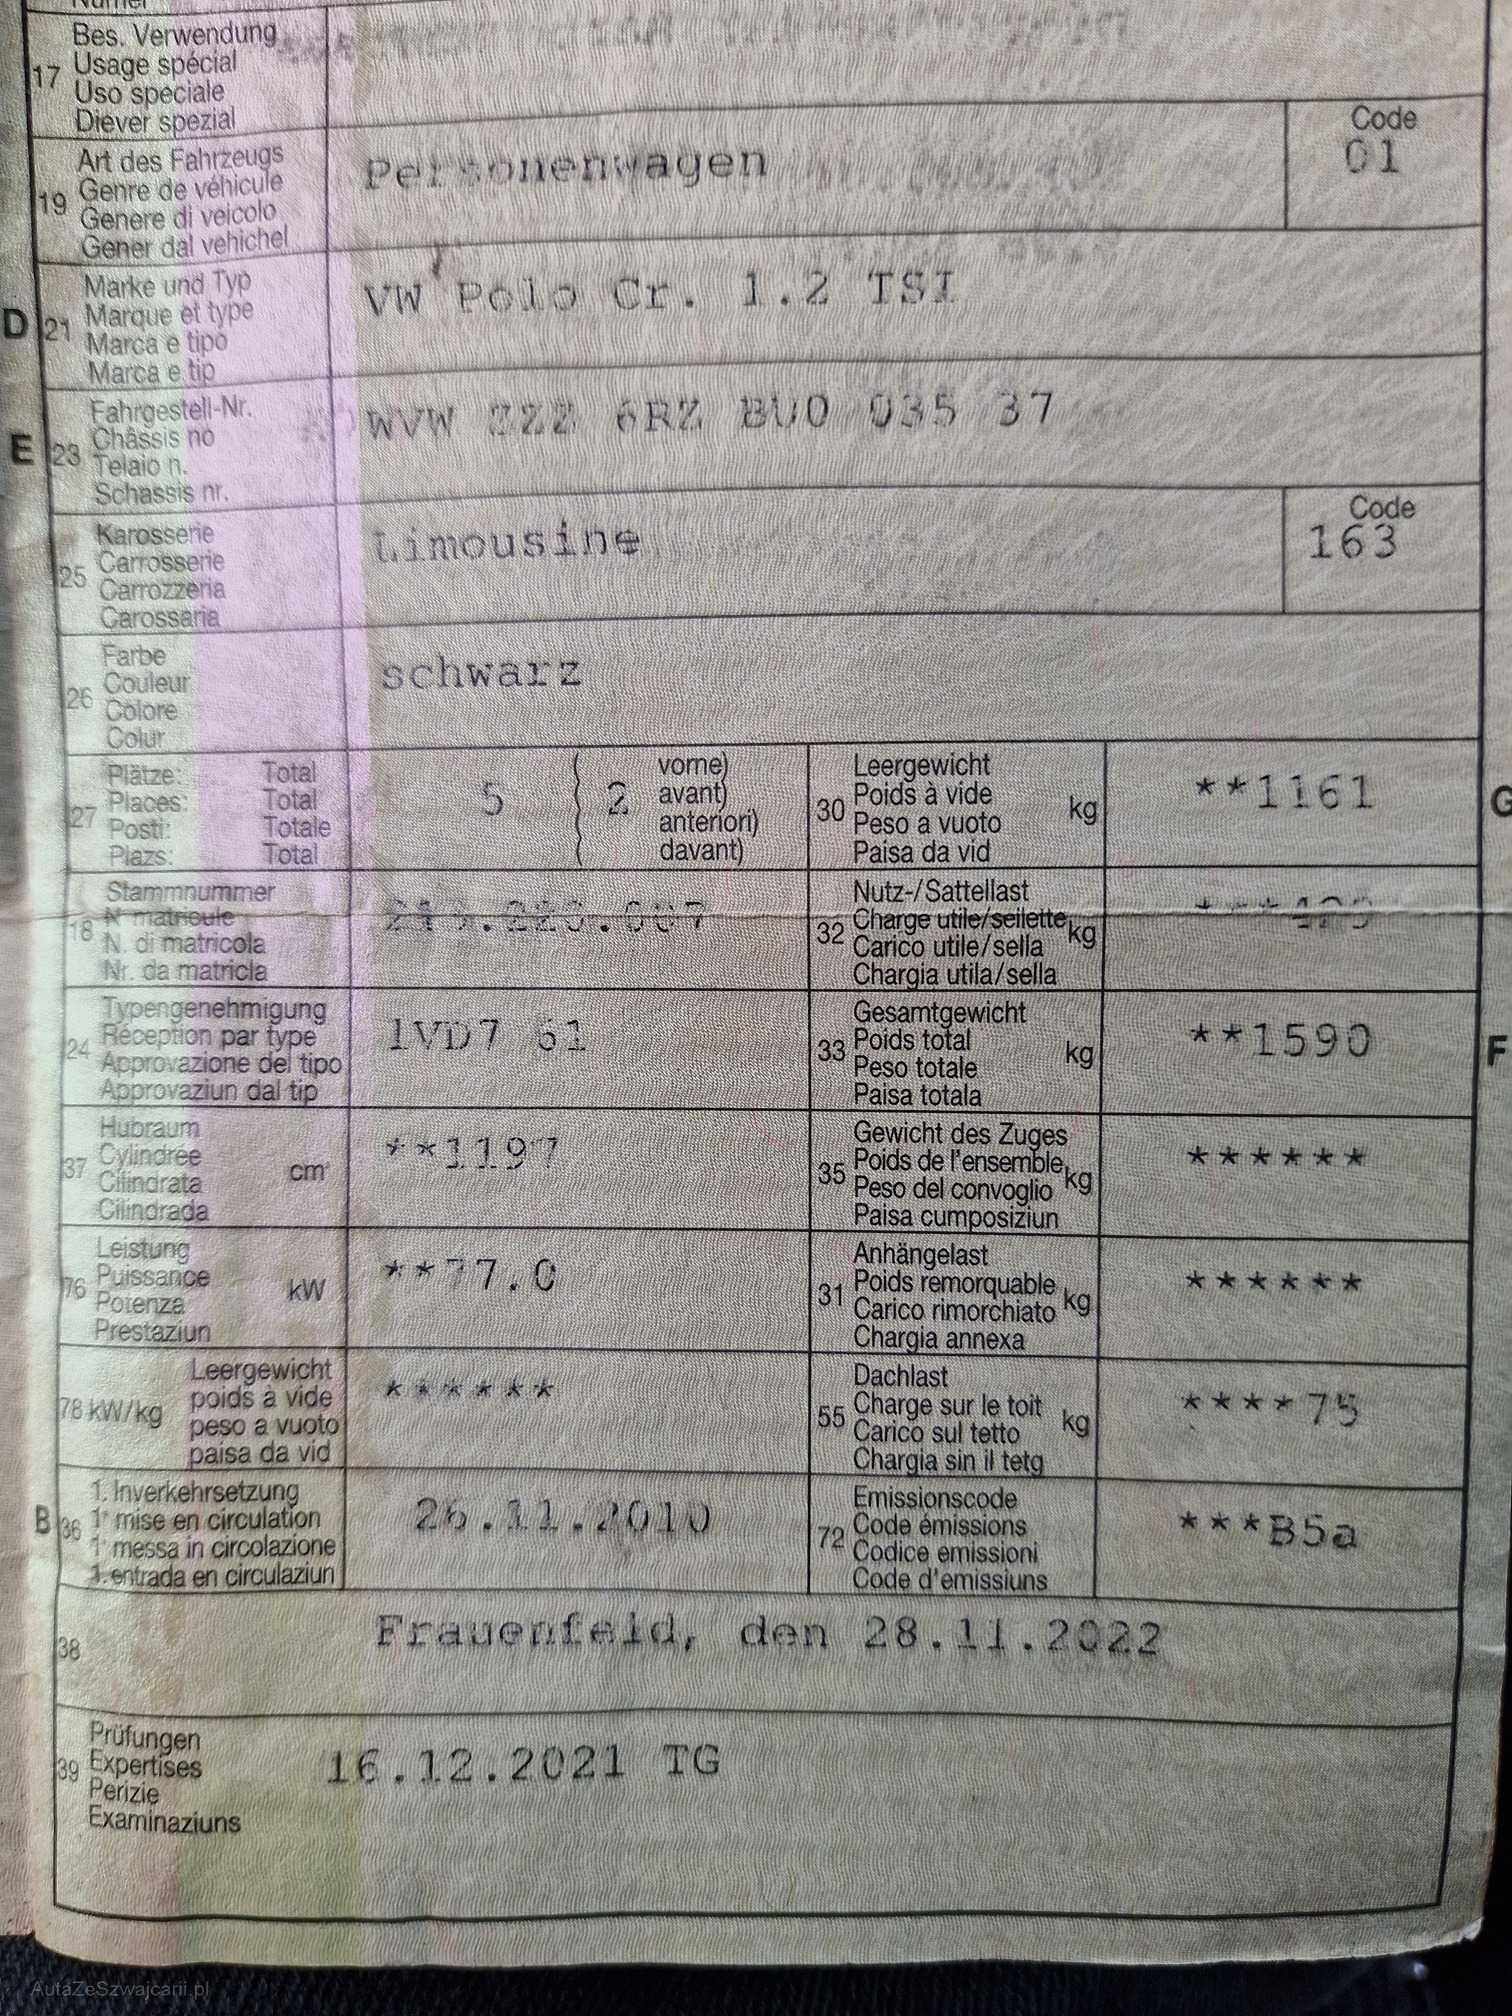 17 Bes. Verwendung
Usage spécial
Uso speciale
Diever spezial
19 Art des Fahrzeugs
Genre de véhicule
Genere di veicolo
Gener dal vehichel
Personenwagen
Code
01
D 21 Marke und Typ
Marque et type
Marca e tipo
Marca e tip
VW Polo Cr. 1.2 TSI
E 23 Fahrgestell-Nr.
Châssis no
Telaio n.
Schassis nr.
WVW ZZZ 6RZ BU0 035 37
25 Karosserie
Carrosserie
Carrozzeria
Carossaria
Limousine
Code
163
26 Farbe
Couleur
Colore
Colur
schwarz
27 Plätze: Total
Places: Total
Posti: Totale
Plazs: Total
5 2
vorne)
avant)
anteriori)
davant)
30 Leergewicht
Poids à vide
Peso a vuoto
Paisa da vid
kg
**1161
G
18 Stammnummer
N° matricule
N. di matricola
Nr. da matricla
32 Nutz-/Sattellast
Charge utile/sellette
Carico utile/sella
Chargia utila/sella
kg
24 Typengenehmigung
Réception par type
Approvazione del tipo
Approvaziun dal tip
1VD7 61
33 Gesamtgewicht
Poids total
Peso totale
Paisa totala
kg
**1590
F
37 Hubraum
Cylindrée
Cilindrata
Cilindrada
cm³
**1197
35 Gewicht des Zuges
Poids de l'ensemble
Peso del convoglio
Paisa cumposiziun
kg
******
76 Leistung
Puissance
Potenza
Prestaziun
kW
**77.0
31 Anhängelast
Poids remorquable
Carico rimorchiato
Chargia annexa
kg
******
78 kW/kg Leergewicht
poids à vide
peso a vuoto
paisa da vid
******
55 Dachlast
Charge sur le toit
Carico sul tetto
Chargia sin il tetg
kg
****75
B 36 1. Inverkehrsetzung
1° mise en circulation
1° messa in circolazione
1. entrada en circulaziun
26.11.2010
72 Emissionscode
Code émissions
Codice emissioni
Code d'emissiuns
***B5a
38 Frauenfeld, den 28.11.2022
39 Prüfungen
Expertises
Perizie
Examinaziuns
16.12.2021 TG
AutaZeSzwajcarii.pl